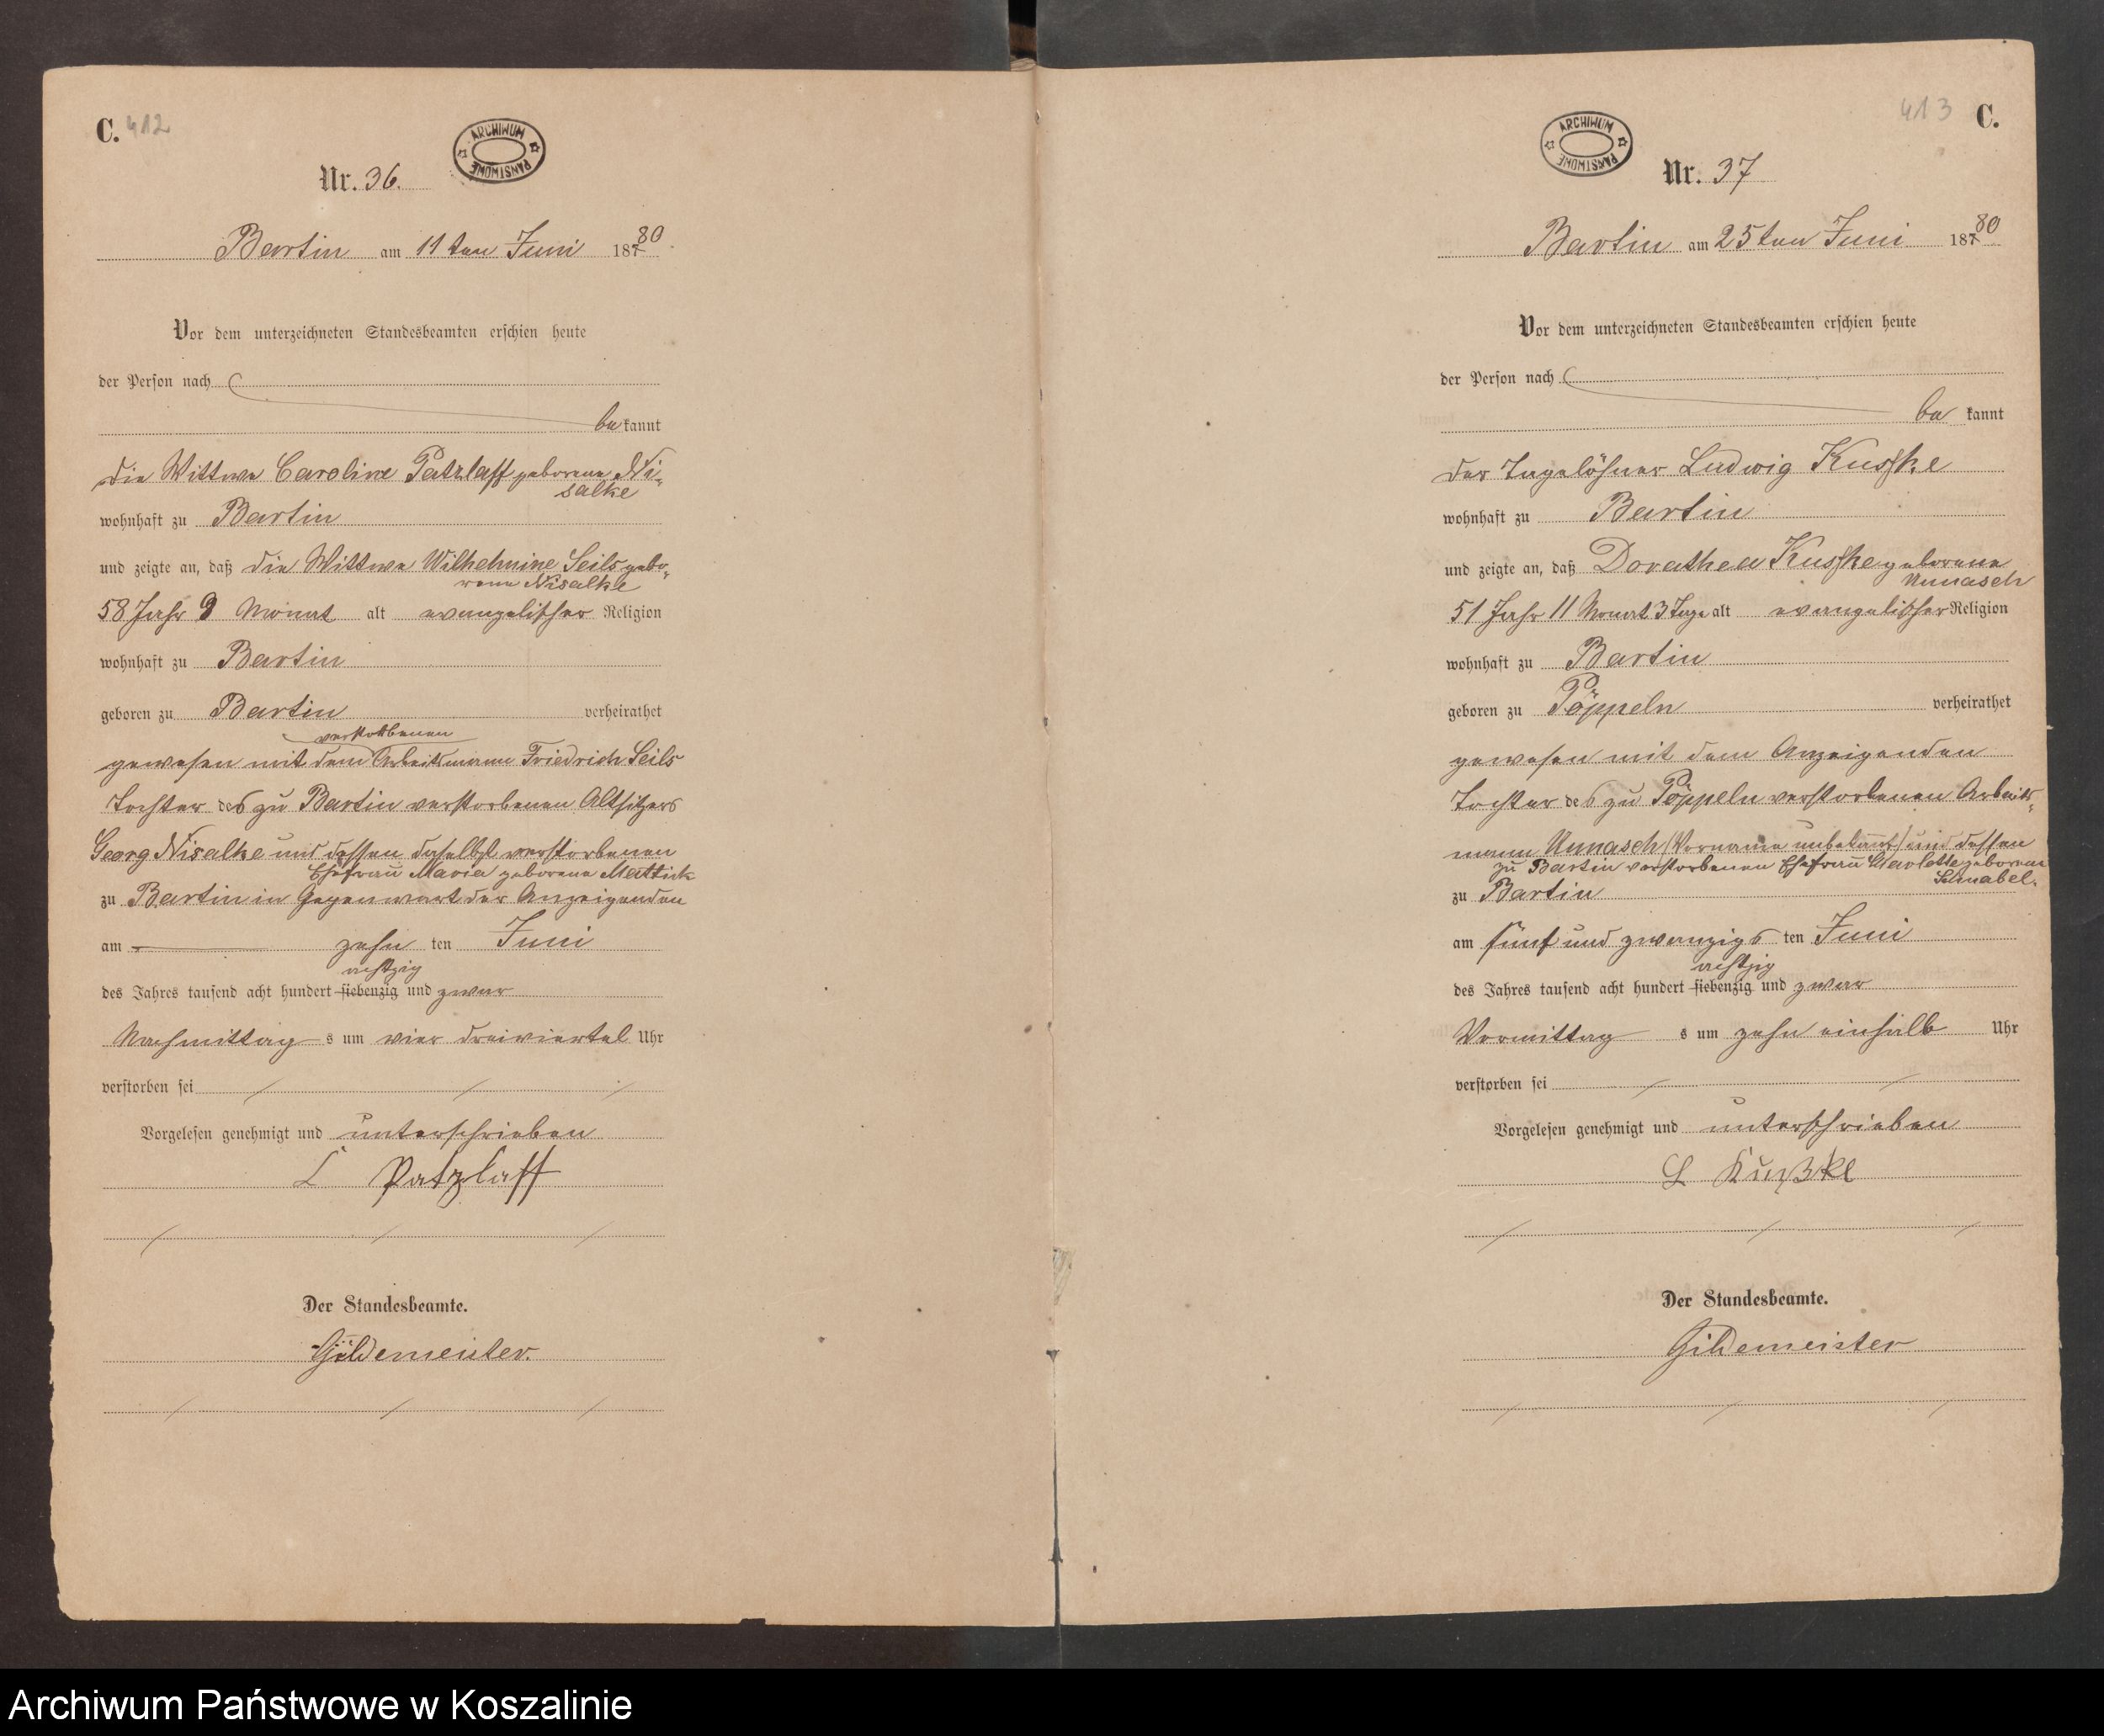 C. 412
ARCHIWUM PAŃSTWOWE
Nr. 36.
Bartin am 11ten Juni 18780.
Vor dem unterzeichneten Standesbeamten erschien heute
der Person nach
bekannt
die Wittwe Caroline Patzlaff geborene Ni-
salke
wohnhaft zu Bartin
und zeigte an, daß die Wittwe Wilhelmine Seils gebo-
rene Nisalke
58 Jahr 9 Monat alt evangelischer Religion
wohnhaft zu Bartin
geboren zu Bartin verheirathet
verstorbenen
gewesen mit dem Arbeitsmann Friedrich Seils
Tochter des zu Bartin verstorbenen Altsitzers
Georg Nisalke und dessen daselbst verstorbenen
Ehefrau Maria geborene Mattick
zu Bartin in Gegenwart der Anzeigenden
am zehn ten Juni
achtzig
des Jahres tausend acht hundert siebenzig und zwar
Nachmittag s um vier dreiviertel Uhr
verstorben sei
Vorgelesen genehmigt und unterschrieben
C Patzlaff
Der Standesbeamte.
Gildemeister.
413 C.
ARCHIWUM PAŃSTWOWE
Nr. 37
Bartin am 25ten Juni 18780
Vor dem unterzeichneten Standesbeamten erschien heute
der Person nach
be kannt
der Tagelöhner Ludwig Kuschke
wohnhaft zu Bartin
und zeigte an, daß Dorathea Kuschke geborene
Unnasch
51 Jahr 11 Monat 3 Tage alt evangelischer Religion
wohnhaft zu Bartin
geboren zu Pöppeln verheirathet
gewesen mit dem Anzeigenden
Tochter des zu Pöppeln verstorbenen Arbeits-
mann Unnasch (Vorname unbekannt) und dessen
zu Bartin verstorbenen Ehefrau Charlotte geborene
Schnabel.
zu Bartin
am fünf und zwanzigs ten Juni
achtzig
des Jahres tausend acht hundert siebenzig und zwar
Vormittag s um zehn einhalb Uhr
verstorben sei
Vorgelesen genehmigt und unterschrieben
L Kußke
Der Standesbeamte.
Gildemeister
Archiwum Państwowe w Koszalinie